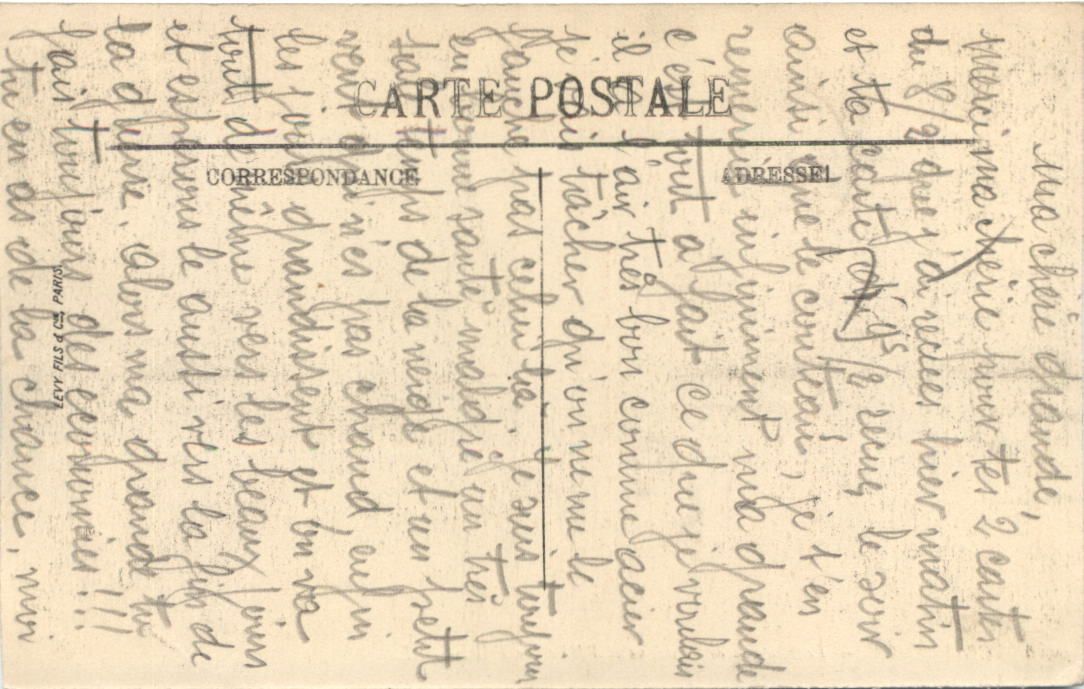 CARTE POSTALE
CORRESPONDANCE
ADRESSE
LEVY FILS & Cie, PARIS
Ma chère grande,
Merci ma chérie pour tes 2 cartes
du 8/2 que j'ai reçues hier matin
et ta carte du 9/2 reçue le soir
ainsi que le couteau, je t'en
remercie infiniment ma grande
c'est tout à fait ce que je voulais
il a l'air très bon comme acier
je vais tâcher qu'on ne me le
fauche pas celui là. Je suis toujours
en bonne santé malgré un très
temps de la neige et un petit
vent qui n'es pas chaud, enfin
les jours grandissent et on va
tout de même vers les beaux jours
et espérons le aussi vers la fin de
la guerre. alors ma grande tu
fais toujours des économies !!!
tu en as de la chance, moi